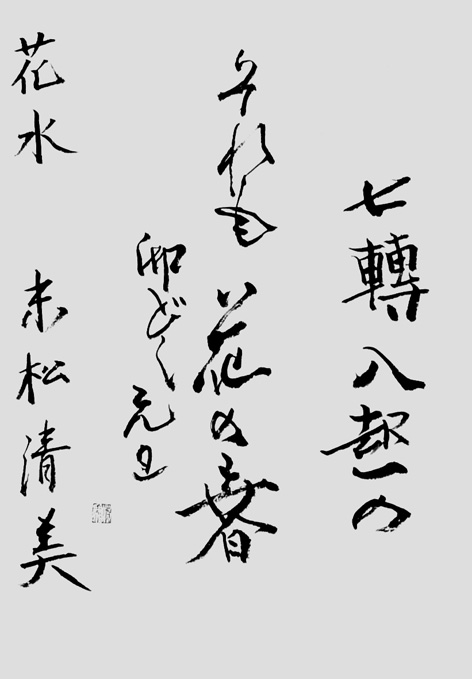 七轉八起の
それも花の春
卯どし元旦
花水 末松清美